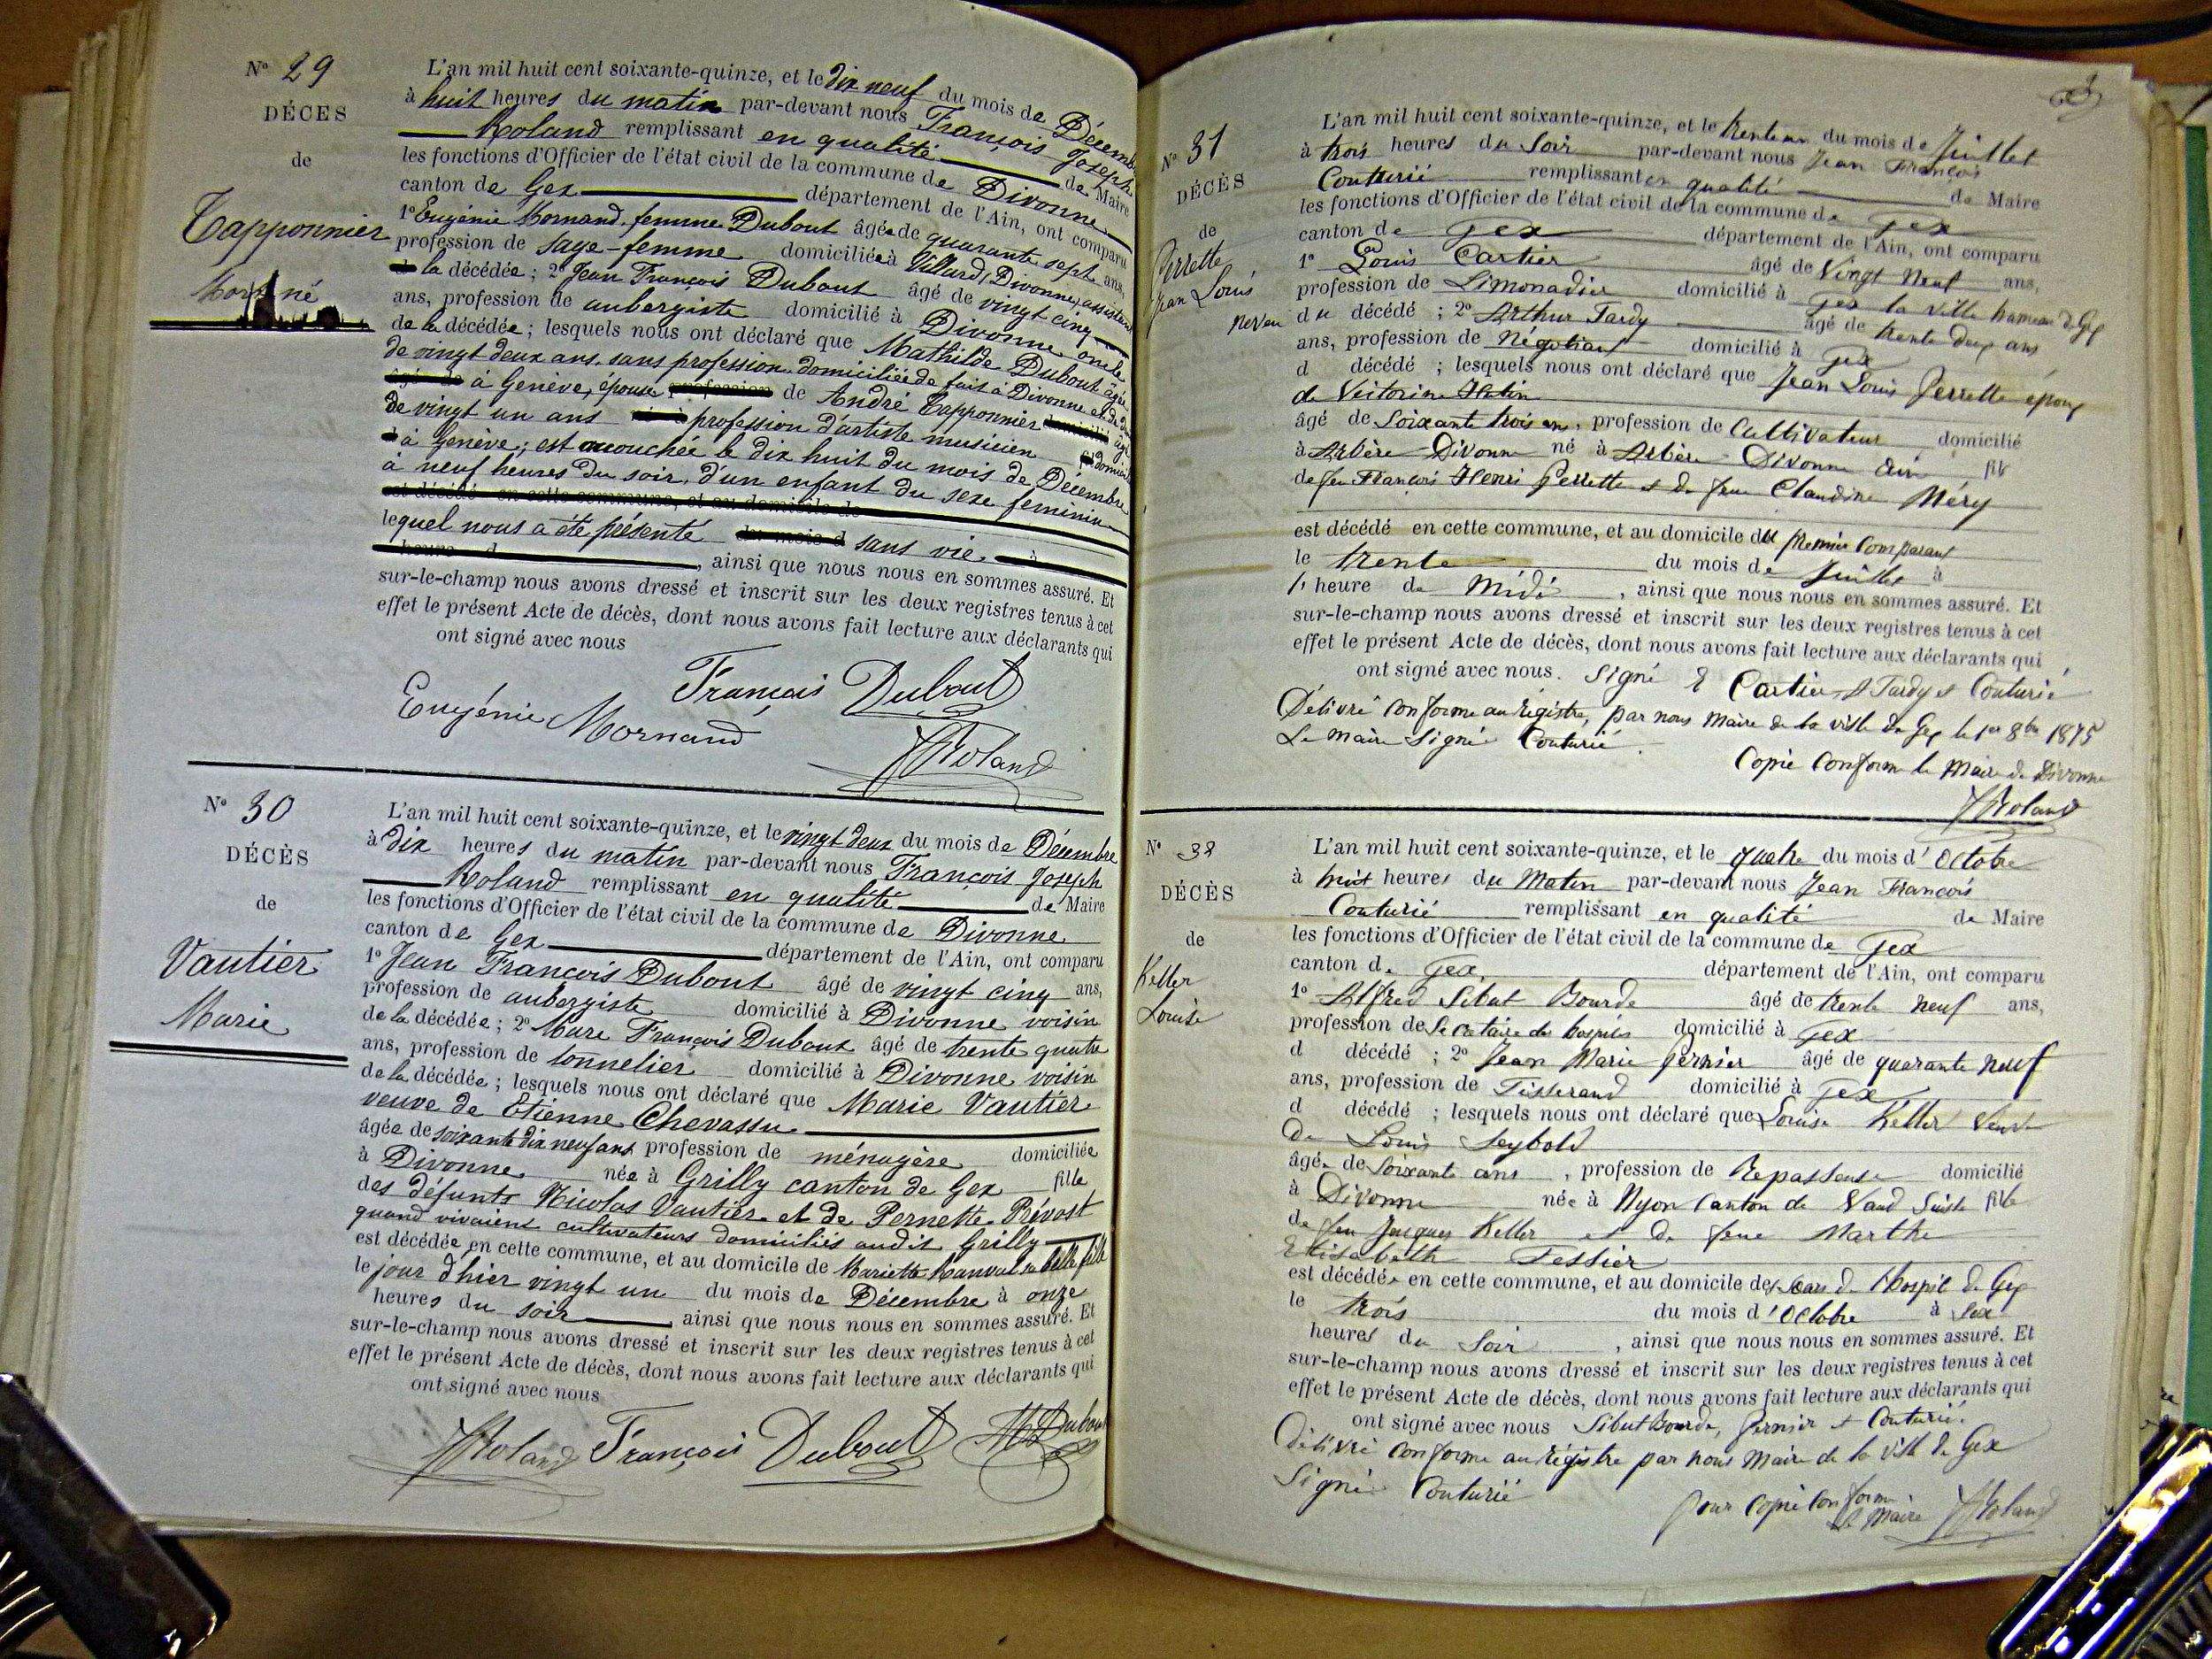 Nº 29
DÉCÈS
de
Tapponnier
Mort né
L'an mil huit cent soixante-quinze, et le dix neuf du mois de Décemb
à huit heures du matin par-devant nous François Joseph
Roland remplissant en qualité de Maire
les fonctions d'Officier de l'état civil de la commune de Divonne
canton de Gex département de l'Ain, ont comparu
1º Eugénie Mornand femme Dubout âgée de quarante sept ans,
profession de sage-femme domiciliée à Villard, Divonne,
la décédée ; 2º Jean François Dubout âgé de vingt cinq
ans, profession de aubergiste domicilié à Divonne oncle
de la décédée ; lesquels nous ont déclaré que Mathilde Dubout âgée
de vingt deux ans, sans profession domiciliée de fait à Divonne et de
à Genève, épouse de André Tapponnier
de vingt un ans profession d'artiste musicien
à Genève ; est accouchée le dix huit du mois de Décembre
à neuf heures du soir, d'un enfant du sexe feminin
est décédé en cette commune, et au domicile de
lequel nous a été présenté du mois d sans vie à
heure d , ainsi que nous nous en sommes assuré. Et
sur-le-champ nous avons dressé et inscrit sur les deux registres tenus à cet
effet le présent Acte de décès, dont nous avons fait lecture aux déclarants qui
ont signé avec nous
François Dubout
Eugénie Mornand
Roland
Nº 30
DÉCÈS
de
Vautier
Marie
L'an mil huit cent soixante-quinze, et le vingt deux du mois de Décembre
à dix heures du matin par-devant nous François Joseph
Roland remplissant en qualité de Maire
les fonctions d'Officier de l'état civil de la commune de Divonne
canton de Gex département de l'Ain, ont comparu
1º Jean François Dubout âgé de vingt cinq ans,
profession de aubergiste domicilié à Divonne voisin
de la décédée ; 2º Marc François Dubout âgé de trente quatre
ans, profession de tonnelier domicilié à Divonne voisin
de la décédée ; lesquels nous ont déclaré que Marie Vautier
veuve de Etienne Chevassu
âgée de soixante dix neuf ans profession de ménagère domiciliée
à Divonne née à Grilly canton de Gex fille
des défunts Nicolas Vautier et de Pernette Prévost
quand vivaient cultivateurs domiciliés audit Grilly
est décédée en cette commune, et au domicile de Mariette sa belle fille
le jour d'hier vingt un du mois de Décembre à onze
heures du soir ainsi que nous nous en sommes assuré. Et
sur-le-champ nous avons dressé et inscrit sur les deux registres tenus à cet
effet le présent Acte de décès, dont nous avons fait lecture aux déclarants qui
ont signé avec nous
Roland François Dubout M Dubout
Nº 31
DÉCÈS
de
Perrette
Jean Louis
L'an mil huit cent soixante-quinze, et le trente un du mois de Juillet
à trois heures du soir par-devant nous Jean François
Couturié remplissant en qualité de Maire
les fonctions d'Officier de l'état civil de la commune de Gex
canton de Gex département de l'Ain, ont comparu
1º Louis Cartier âgé de vingt neuf ans,
profession de Limonadier domicilié à Gex la ville hameau de Gex
neveu du décédé ; 2º Arthur Tardy âgé de trente deux ans
ans, profession de Négociant domicilié à Gex
d décédé ; lesquels nous ont déclaré que Jean Louis Perrette époux
de Victorine
âgé de Soixante trois ans, profession de Cultivateur domicilié
à Arbère Divonne né à Arbère Divonne Ain fils
de feu François Henri Perrette et de feue Claudine Méry
est décédé en cette commune, et au domicile du premier Comparant
le trente du mois de Juillet à
l' heure de midi , ainsi que nous nous en sommes assuré. Et
sur-le-champ nous avons dressé et inscrit sur les deux registres tenus à cet
effet le présent Acte de décès, dont nous avons fait lecture aux déclarants qui
ont signé avec nous. Signé Cartier, A Tardy et Couturié
Délivré conforme au régistre, par nous Maire de la ville de Gex le 1er 8bre 1875
Le maire Signé Couturié
Copie conforme le Maire de Divonne
Roland
Nº 32
DÉCÈS
de
Keller
Louise
L'an mil huit cent soixante-quinze, et le quatre du mois d' Octobre
à huit heures du Matin par-devant nous Jean François
Couturié remplissant en qualité de Maire
les fonctions d'Officier de l'état civil de la commune de Gex
canton d. Gex département de l'Ain, ont comparu
1º Alfred Sibut Bourde âgé de trente neuf ans,
profession de Secrétaire de hospice domicilié à Gex
d décédé ; 2º Jean Marie Pernier âgé de quarante neuf
ans, profession de Tisserand domicilié à Gex
d décédé ; lesquels nous ont déclaré que Louise Keller veuve
De Louis Seybold
âgée de Soixante ans , profession de Repasseuse domicilié
à Divonne née à Nyon Canton de Vaud Suisse fille
de feu Jacques Keller et de feue Marthe
Elisabeth Tessier
est décédée en cette commune, et au domicile des Sœurs de l'hospice de Gex
le trois du mois d' Octobre à Six
heures du Soir , ainsi que nous nous en sommes assuré. Et
sur-le-champ nous avons dressé et inscrit sur les deux registres tenus à cet
effet le présent Acte de décès, dont nous avons fait lecture aux déclarants qui
ont signé avec nous Sibut Bourde, Pernier et Couturié.
Délivré conforme au régistre par nous Maire de la ville de Gex
Signé Couturié
Pour copie conforme
Le Maire Roland